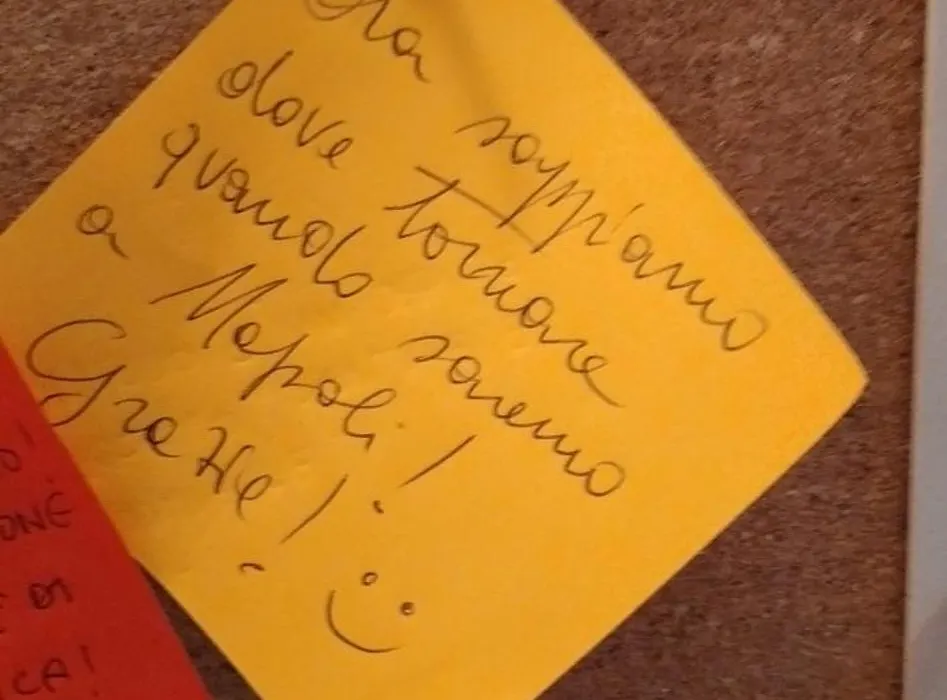 Ora sappiamo
dove tornare
quando saremo
a Napoli!
Grazie!
:)
ONE
DI
ICA!